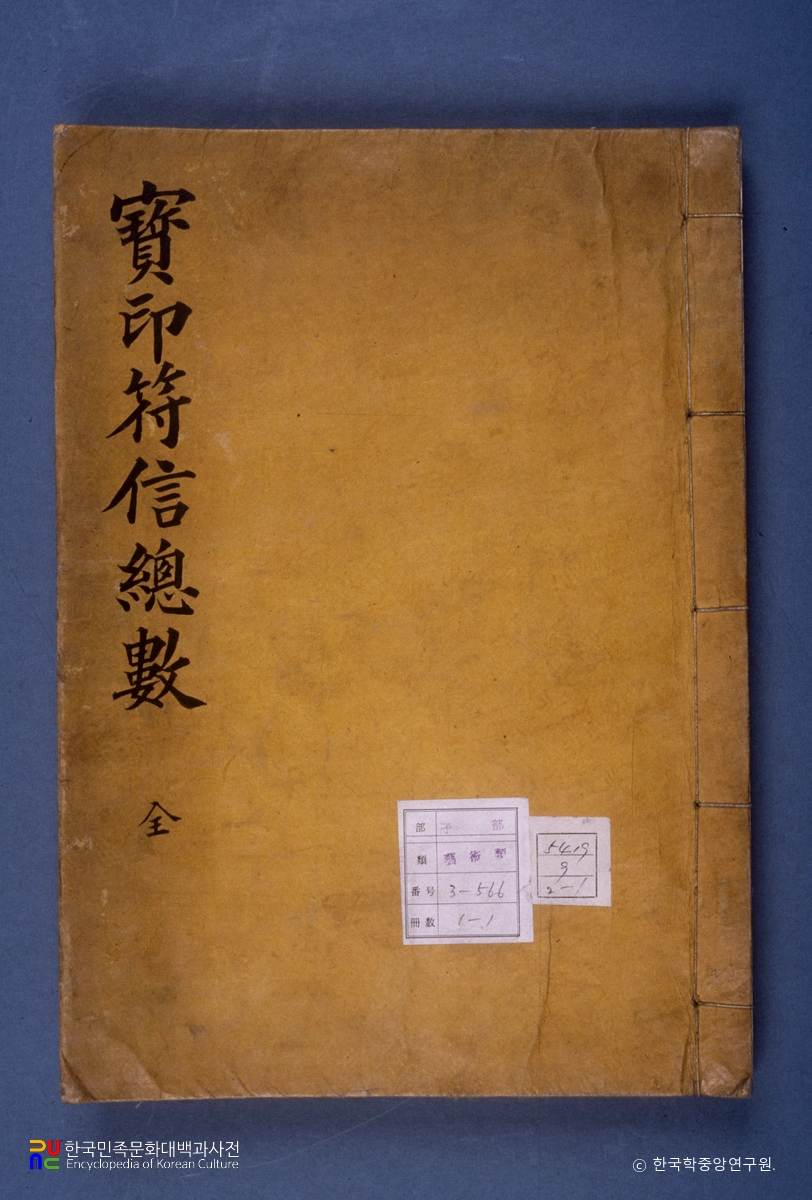 寶印符信總數
全
部 子部
類 藝術類
番号 3-566
冊数 1-1
5419
9
2-1
한국민족문화대백과사전
Encyclopedia of Korean Culture
ⓒ 한국학중앙연구원.